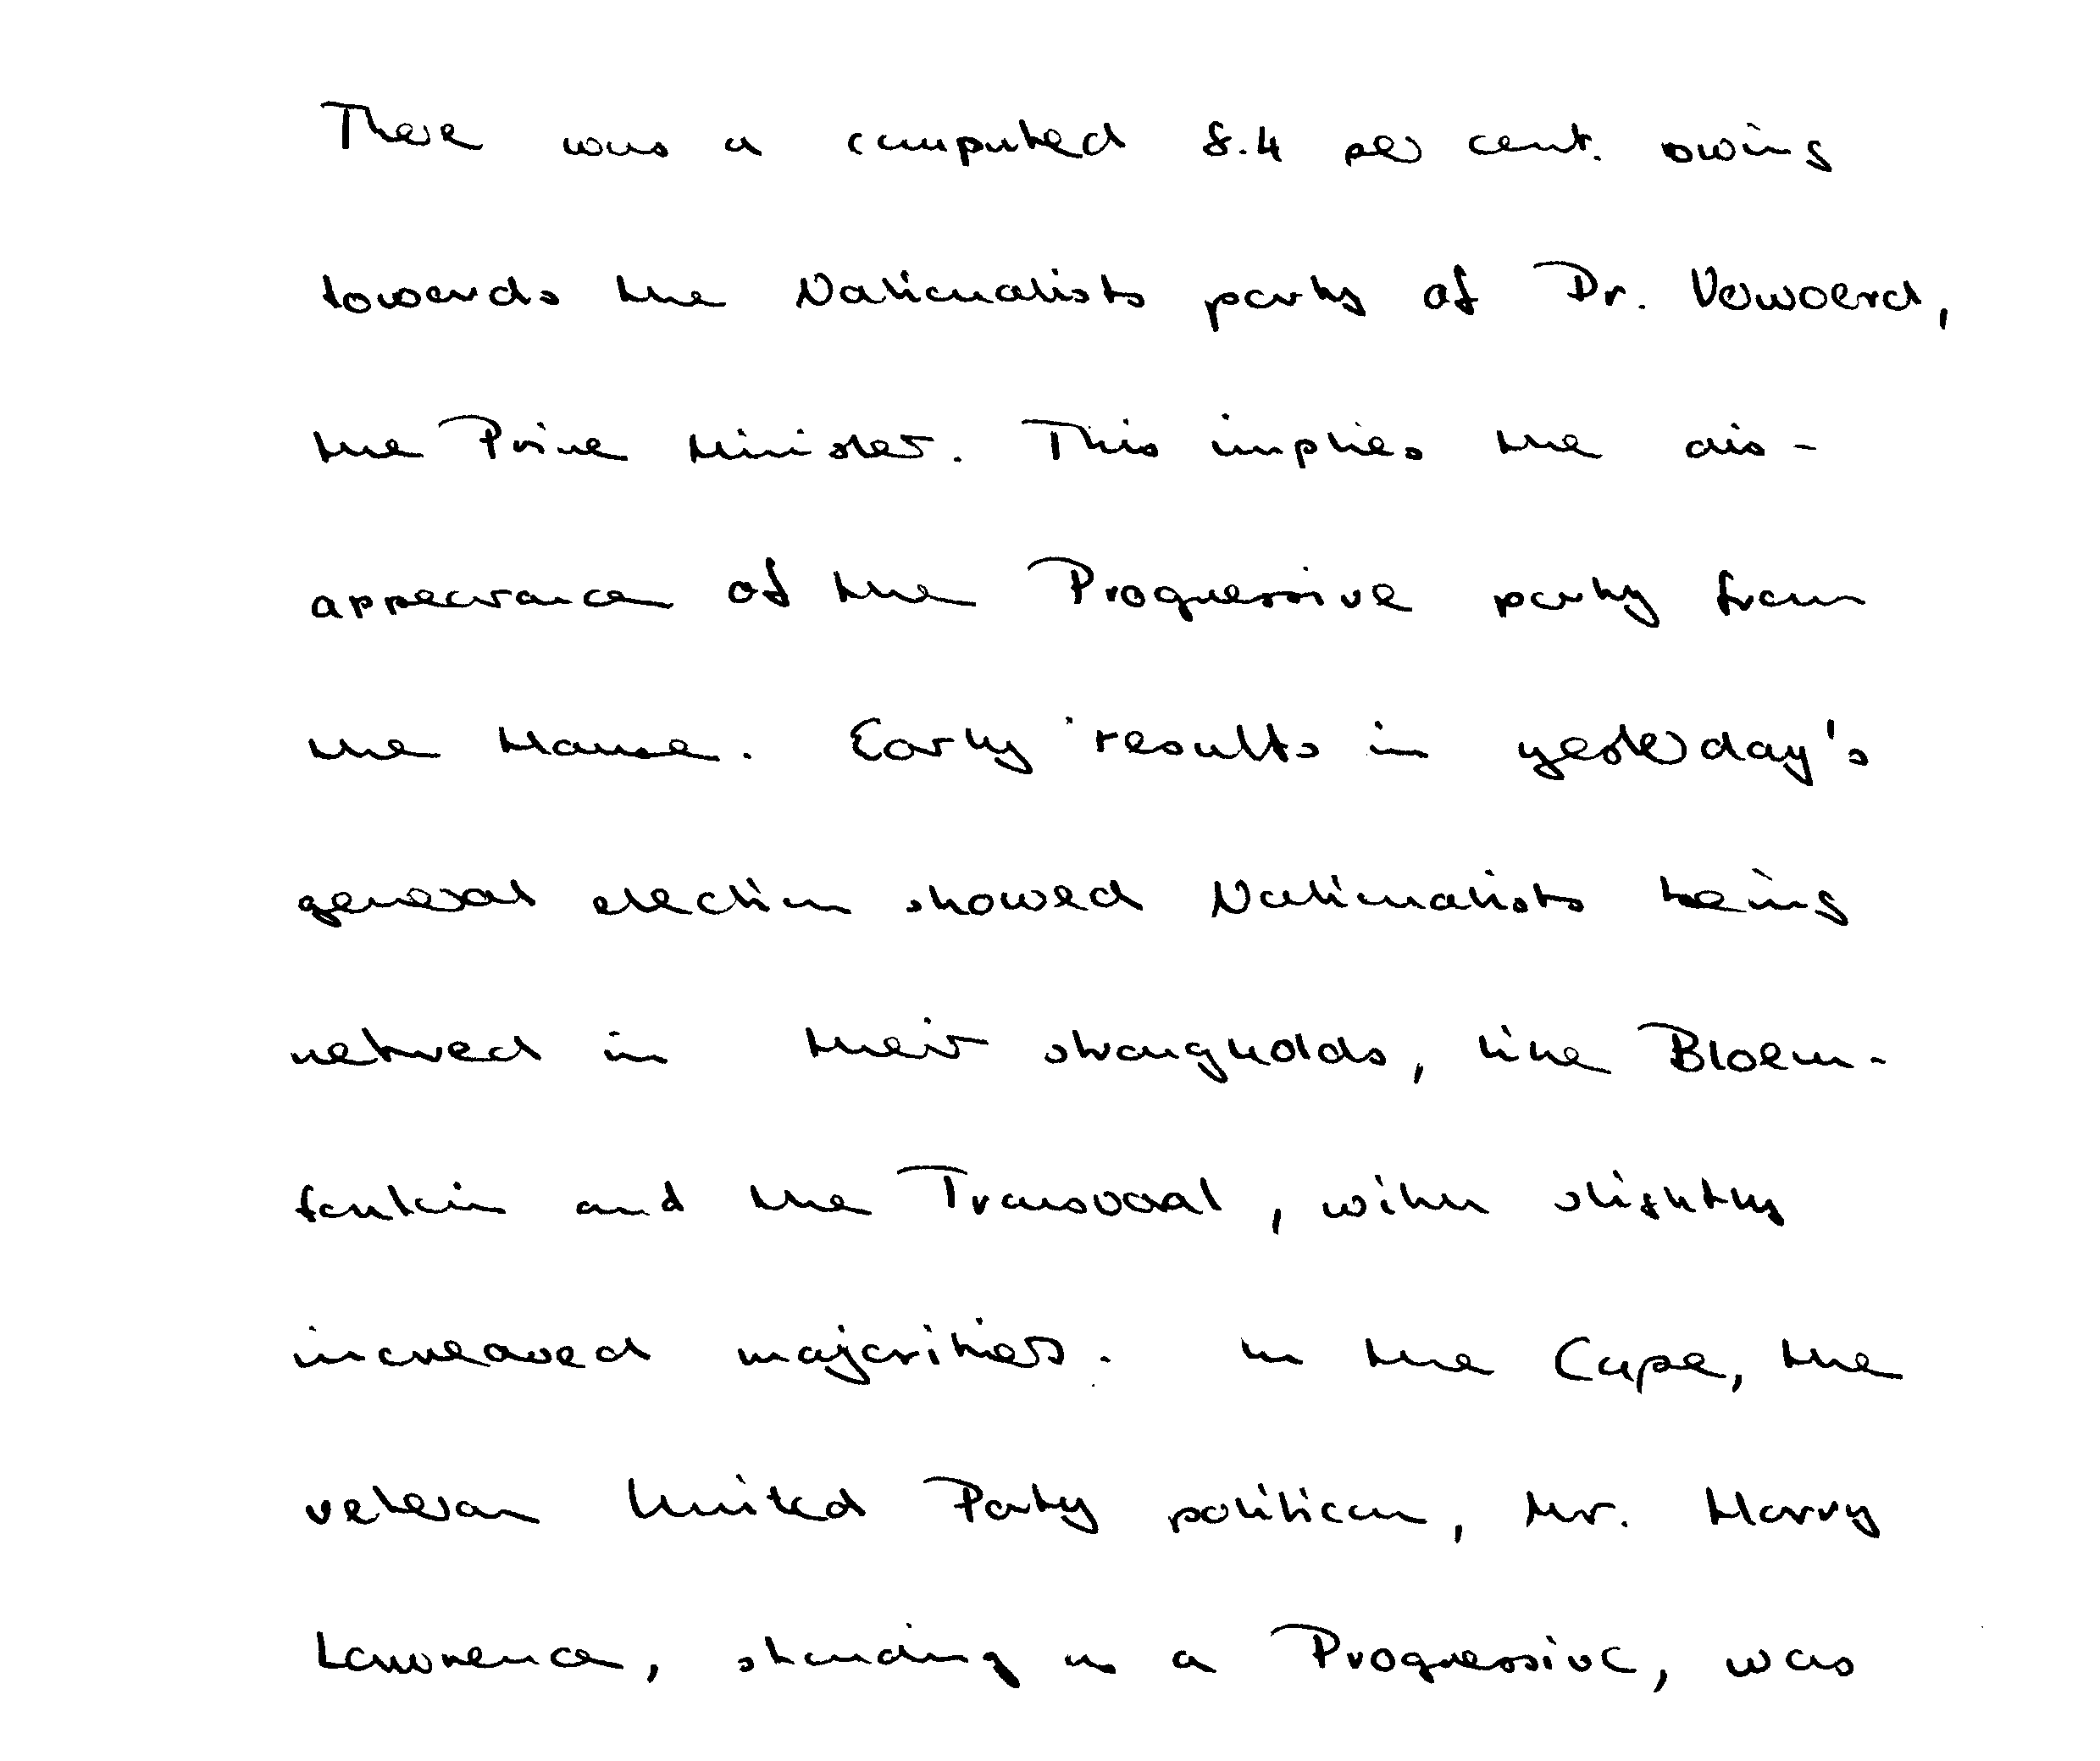 There was a computed 8.4 per cent. owing
towards the Nationalists party of Dr. Vewoerd,
the Prime Minister. This implies the dis-
appearance of the Progressive party from
the House. Early results in yesterday's
general election showed Nationalists being
retured in their strongholds, like Bloem-
fontein and the Transvaal, with slightly
increased majorities. In the Cape, the
veteran United Party politican, Mr. Harry
Lawrence, standing as a Progressive, was